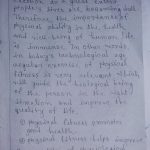 people's lives are becoming dull.
Therefore, the importance of
physical activity in the health
and well being of human life
is immense. In other words
in today's technological era
regular exercise of physical
fitness is very relevant which
will guide the biological being
of the person in the right
direction and improve the
quality of life.
① physical fitness promotes
good health.
② physical fitness helps improve